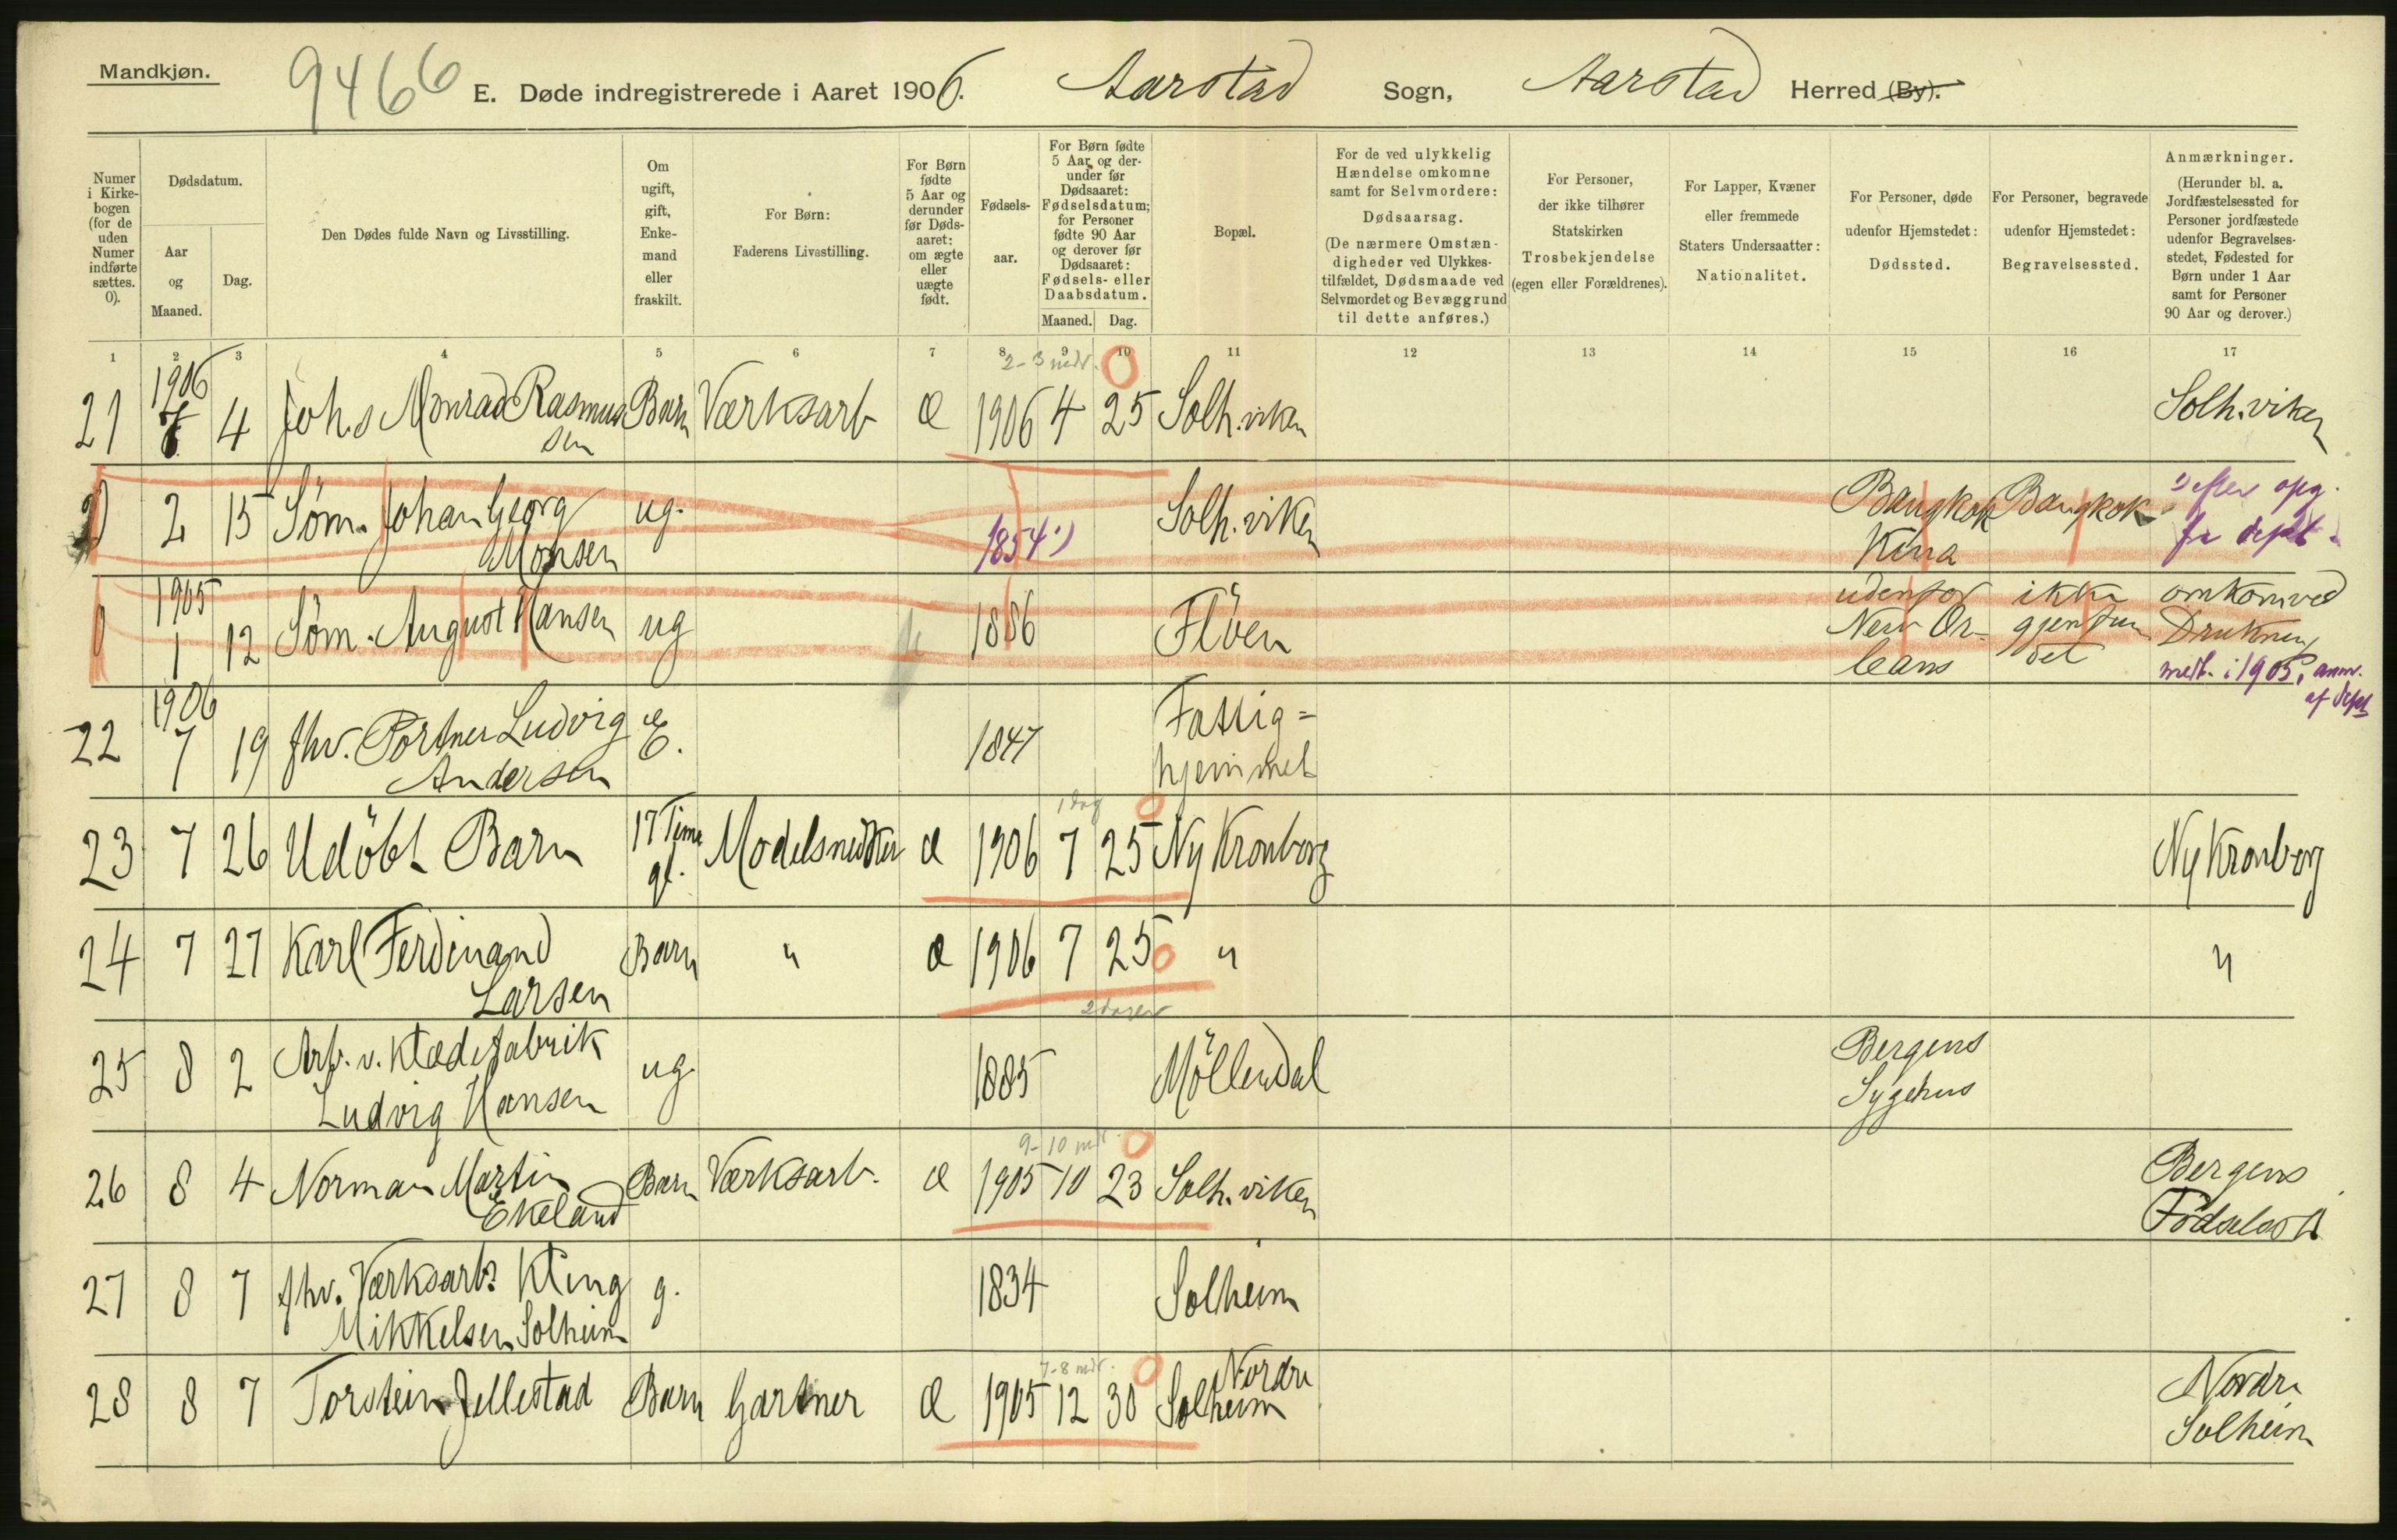 Mandkjøn.
9466
E. Døde indregistrerede i Aaret 1906. Aarstad Sogn, Aarstad Herred (By).
Numer i Kirkebogen (for de uden Numer indførte sættes. 0).
Dødsdatum.
Aar og Maaned.
Dag.
Den Dødes fulde Navn og Livsstilling.
Om ugift, gift, Enkemand eller fraskilt.
For Børn: Faderens Livsstilling.
For Børn fødte 5 Aar og derunder før Dødsaaret: om ægte eller uægte født.
Fødselsaar.
For Børn fødte 5 Aar og derunder før Dødsaaret: Fødselsdatum; for Personer fødte 90 Aar og derover før Dødsaaret: Fødsels- eller Daabsdatum.
Maaned. Dag.
Bopæl.
For de ved ulykkelig Hændelse omkomne samt for Selvmordere: Dødsaarsag. (De nærmere Omstændigheder ved Ulykkestilfældet, Dødsmaade ved Selvmordet og Bevæggrund til dette anføres.)
For Personer, der ikke tilhører Statskirken Trosbekjendelse (egen eller Forældrenes).
For Lapper, Kvæner eller fremmede Staters Undersaatter: Nationalitet.
For Personer, døde udenfor Hjemstedet: Dødssted.
For Personer, begravede udenfor Hjemstedet: Begravelsessted.
Anmærkninger. (Herunder bl. a. Jordfæstelsessted for Personer jordfæstede udenfor Begravelsesstedet, Fødested for Børn under 1 Aar samt for Personer 90 Aar og derover.)
1 2 3 4 5 6 7 8 9 10 11 12 13 14 15 16 17
2-3 mdr.
1906
21 7 4 Johs Monrad Rasmussen Barn Værksarb Æ 1906 4 25 Solh.viken Solh.viken
0 2 15 Søm. Johan Georg Monsen ug. 1854 ¹) Solh.viken Bangkok Kina Bangkok ¹) efter opg. fra dept.
1905
0 1 12 Søm. August Hansen ug 1886 Flöen udenfor New Orleans ikke gjenfundet omkom ved Drukning
medt. i 1905, anm. af dept
1906
22 7 19 fhv. Portner Ludvig Andersen E. 1847 Fattig=hjemmet
1 dag
23 7 26 Udöbt Barn 17 Time gl. Modelsnedker Æ 1906 7 25 Ny Kronborg Ny Kronborg
24 7 27 Karl Ferdinand Larsen Barn " Æ 1906 7 25 " "
2 dager
25 8 2 Arb. v. Klædefabrik Ludvig Hansen ug. 1885 Möllendal Bergens Sygehus
9-10 mdr.
26 8 4 Norman Martin Ekeland Barn Værksarb. Æ 1905 10 23 Solh.viken Bergens Födselsst
27 8 7 fhv. Værksarb. Kting Mikkelsen Solheim g. 1834 Solheim
7-8 mdr.
28 8 7 Torstein Jellestad Barn Gartner Æ 1905 12 30 Nordre Solheim Nordre Solheim